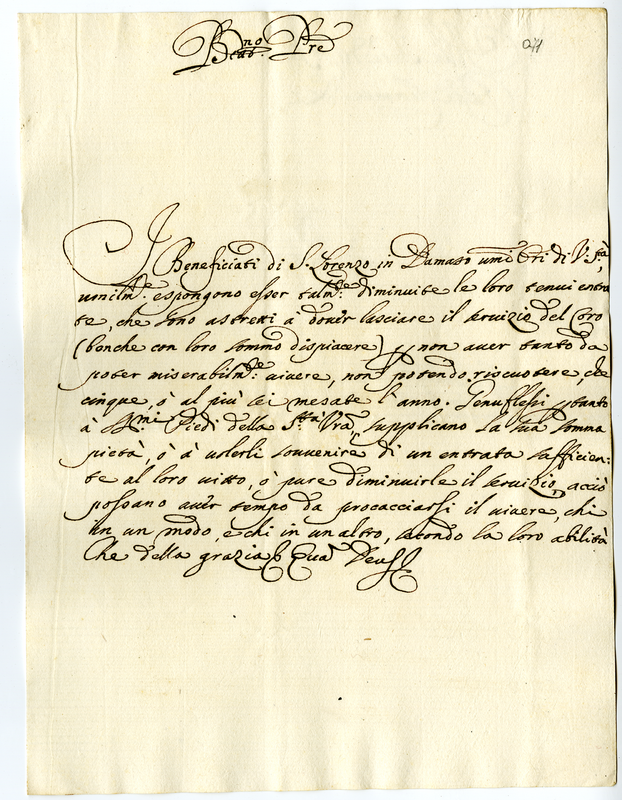 Beat.mo Pre
271
I Beneficiati di S. Lorenzo in Damaso umi Ori di V. Stà,
umilm.te espongono esser talm.te diminuite le loro tenui entra
te, che sono astretti à dover lasciare il servizio del Coro
(benche con loro sommo dispiacere) p non aver tanto da
poter miserabilm.te vivere, non potendo riscuotere, che
cinque, ò al più sei mesate l'anno. Genuflessi p tanto
à SS.mi Piedi della S.tà Vra, supplicano la sua somma
pietà, ò à volerli sovvenire di un entrata sufficien:
te al loro vitto, ò pure diminuirle il servizio, acciò
possano aver tempo da procacciarsi il vivere, chi
in un modo, e chi in un altro, secondo la loro abilità
Che della grazia